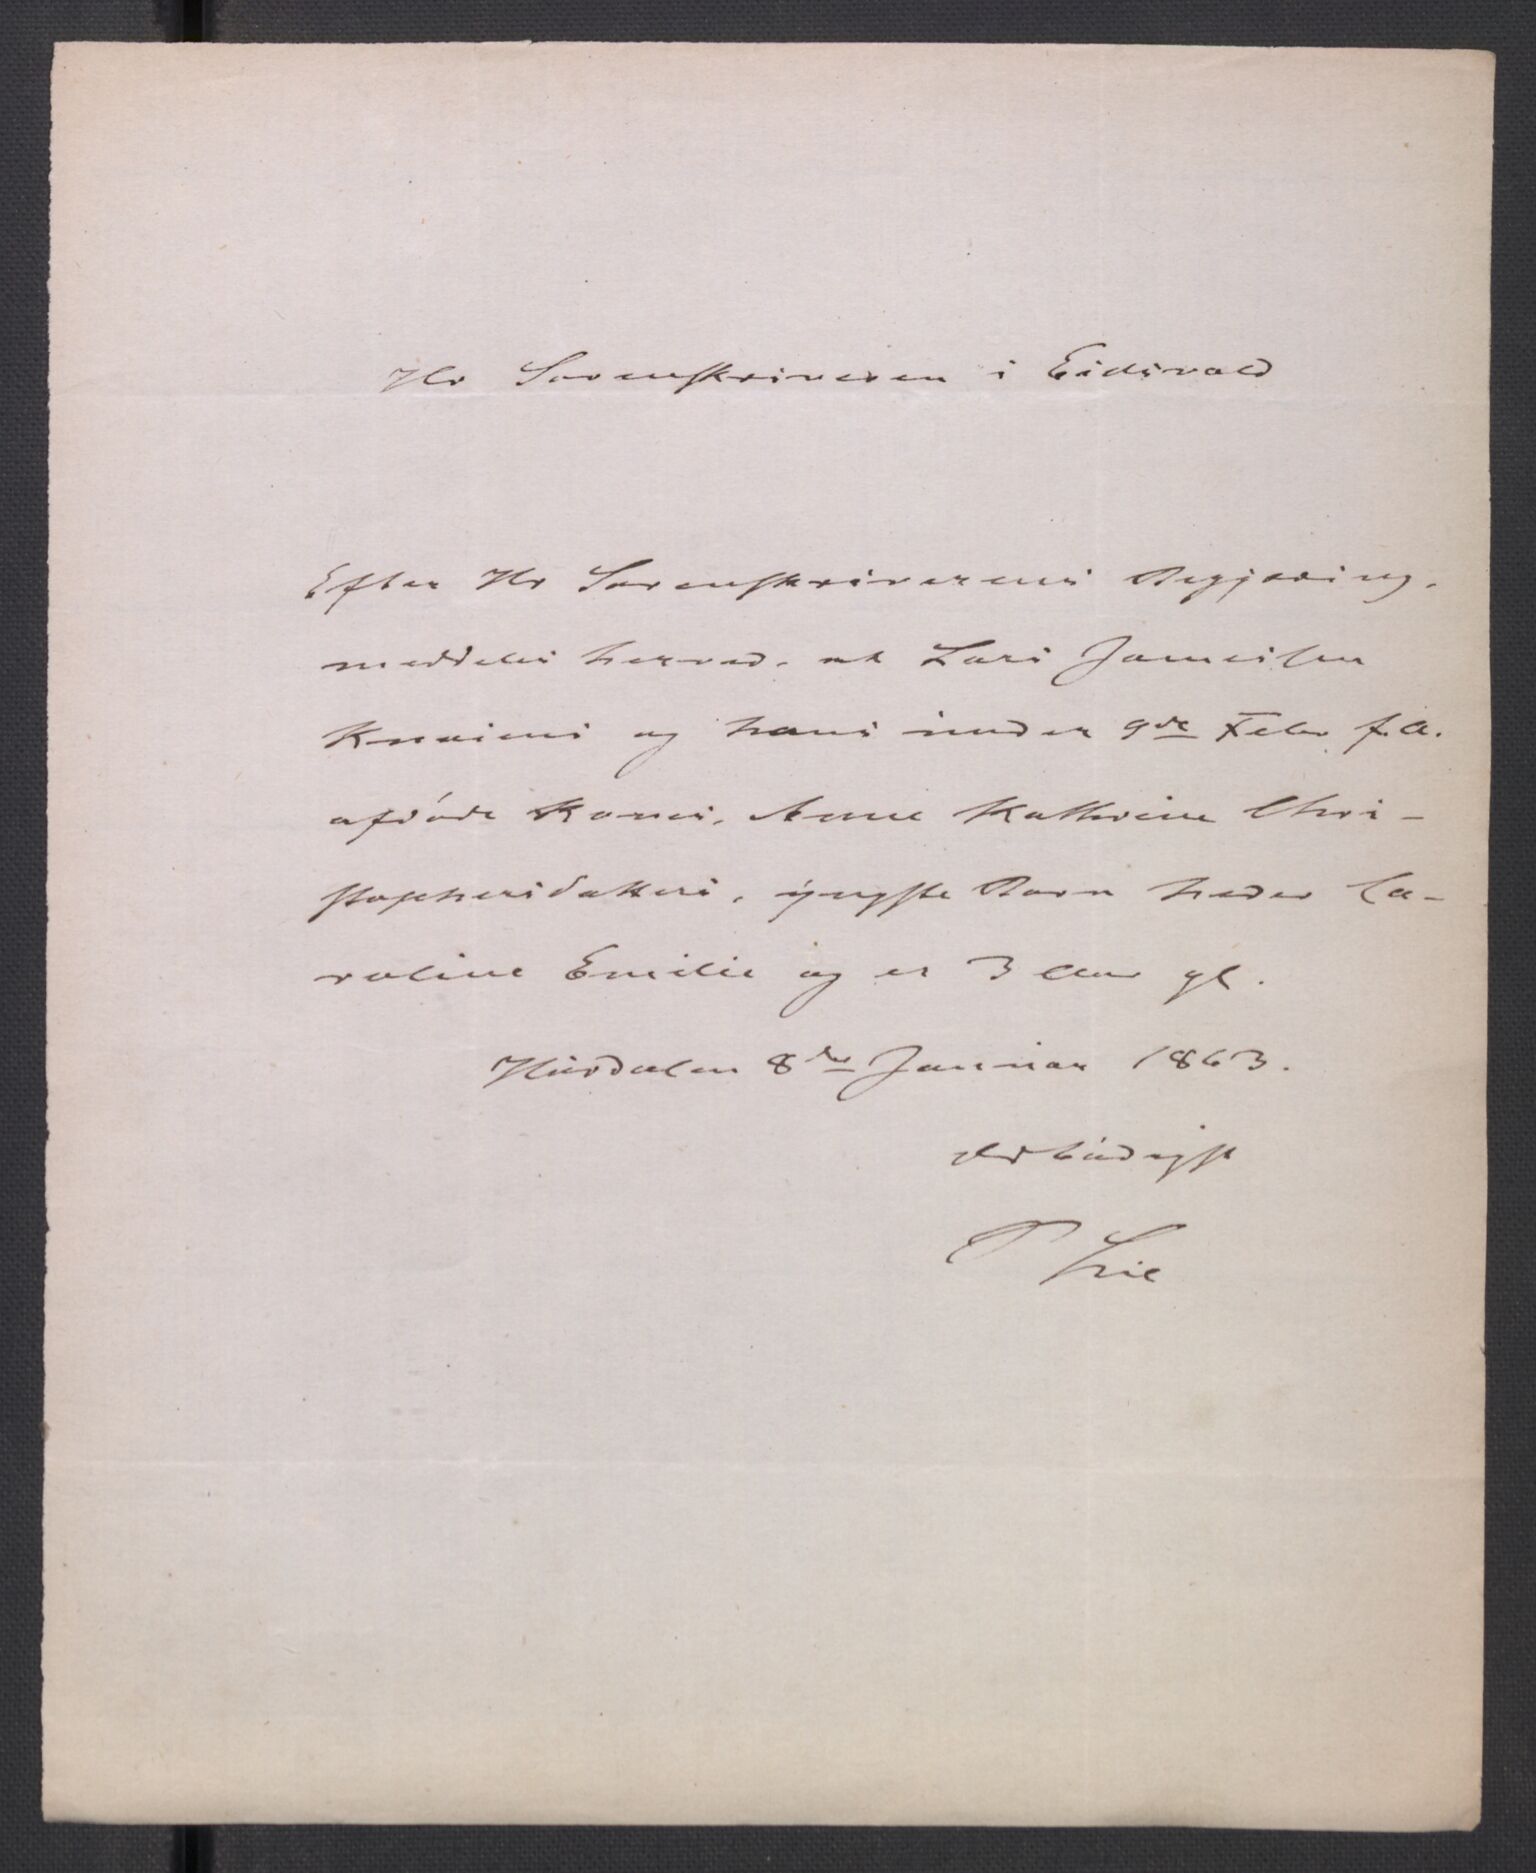 Hr Sorenskriveren i Eidsvold
Efter Hr Sorenskriverens Begjæring,
meddeles herved, at Lars Jameissen
Knaiens og hans under 9de Febr f. A.
afdøde Kones, Anne Kathrine Chri-
stophersdatters, yngste Barn heder Ca-
roline Emilie og er 3 Aar gl.
Hurdalen 8de Januar 1863.
Ærbødigst
P Lie